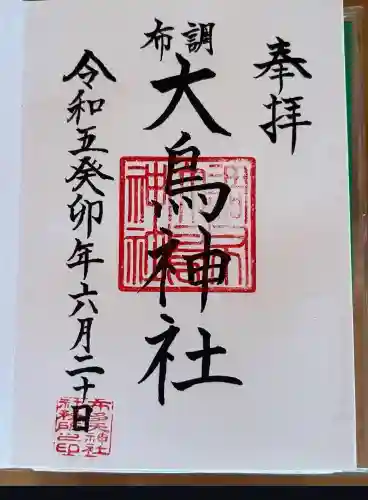 奉拝
調布
大鳥神社
令和五癸卯年六月二十日
布多天神社
社務所之印